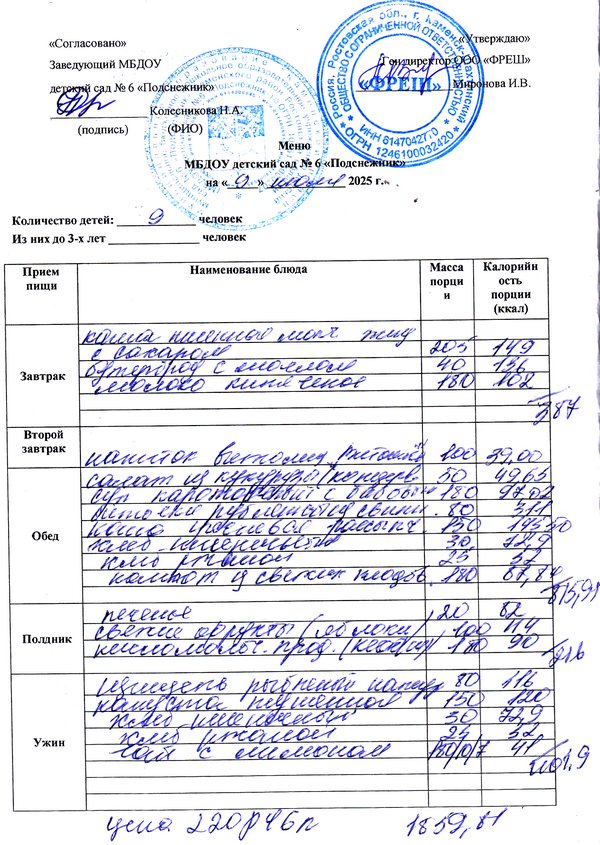 «Согласовано»
«Утверждаю»
Заведующий МБДОУ
Ген.директор ООО «ФРЕШ»
детский сад № 6 «Подснежник»
Миронова И.В.
Колесникова Н.А.
(подпись) (ФИО)
Россия, Ростовская обл., г. Каменск-Шахтинский
ОБЩЕСТВО С ОГРАНИЧЕННОЙ ОТВЕТСТВЕННОСТЬЮ
«ФРЕШ»
ИНН 6147042770
ОГРН 1246100032420
Меню
МБДОУ детский сад № 6 «Подснежник»
на « 9 » июля 2025 г.
Количество детей: 9 человек
Из них до 3-х лет ____ человек
Прием пищи Наименование блюда Масса порции Калорийность порции (ккал)
Завтрак
каша пшенная мол. жид
с сахаром 205 149
бутерброд с маслом 40 136
молоко кипяченое 180 102
387
Второй завтрак
напиток витамин. 100 39,00
Обед
салат из кукурузы (консерв 50 49,65
суп картофельный с бобовы 180 97,02
80 311
каша рассыпч. 150
хлеб пшеничный 30 72,9
хлеб ржаной 25 52
компот из свежих плодов 180 87,84
815,91
Полдник
печенье 20 82
свежие фрукты (яблоки) 100 44
кисломолоч. прод. (кефир) 180 90
216
Ужин
рыбный 80 116
капуста тушеная 150 120
хлеб пшеничный 30 72,9
хлеб ржаной 25 52
чай с лимоном 180/10/7 41
401.9
цена 220р 46к 1859,81